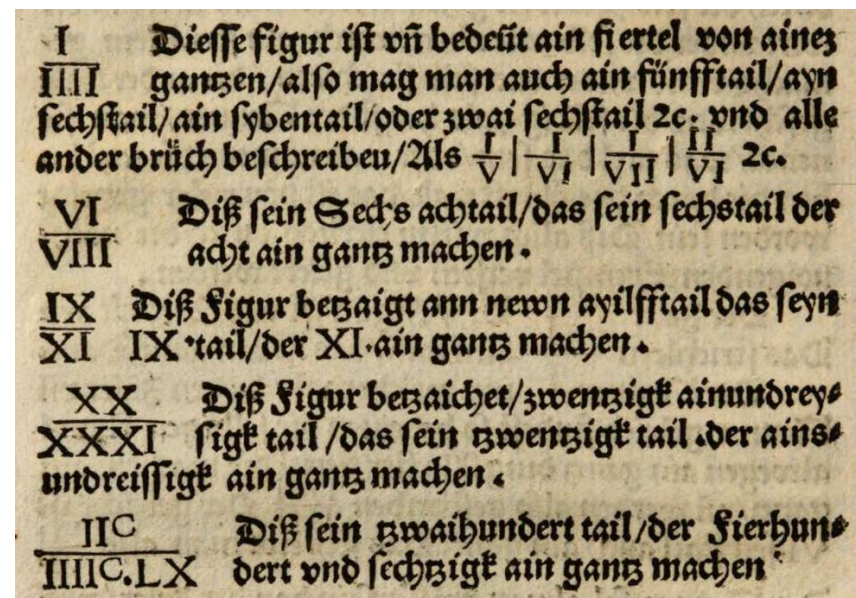 I Diesse figur ist vñ bedeüt ain fiertel von ainez
IIII gantzen/also mag man auch ain fünfftail/ayn
sechstail/ain sybentail/oder zwai sechstail 2c. vnd alle
ander brüch beschreibeu/Als I/V | I/VI | I/VII | II/VI 2c.
VI Diß sein Sechs achtail/das sein sechstail der
VIII acht ain gantz machen.
IX Diß Figur betzaigt ann newn ayilfftail das seyn
XI IX tail/der XI ain gantz machen.
XX Diß Figur betzaichet/zwentzigk ainundrey⸗
XXXI sigk tail/das sein tzwentzigk tail .der ains⸗
undreissigk ain gantz machen.
IIC Diß sein tzwaihundert tail/der Fierhun⸗
IIIIC.LX dert vnd sechtzigk ain gantz machen